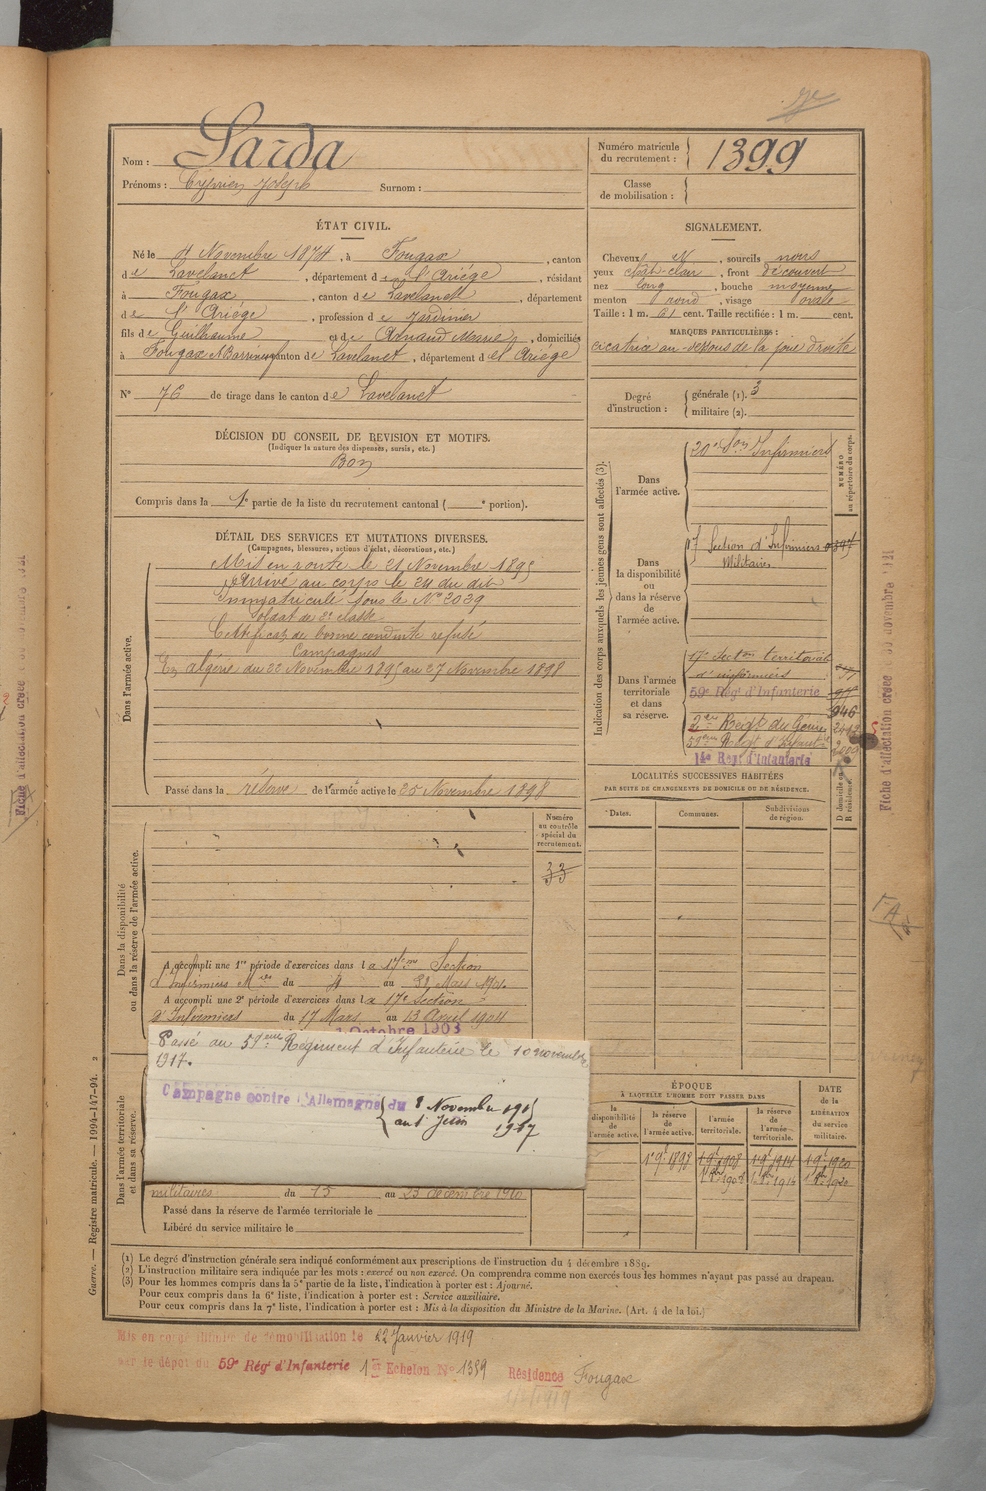 Nom : Sarda
Prénoms : Cyprien Joseph Surnom :
Numéro matricule du recrutement : 1399
Classe de mobilisation :
ÉTAT CIVIL.
Né le 4 Novembre 1874, à Fougax, canton
de Lavelanet, département de l'Ariége, résidant
à Fougax, canton de Lavelanet, département
de l'Ariége, profession de Jardinier
fils de Guilhaume et de Arnaud Marie, domiciliés
à Fougax et Barrineuf canton de Lavelanet, département de l'Ariége
N° 76 de tirage dans le canton de Lavelanet
SIGNALEMENT.
Cheveux N, sourcils noirs
yeux chât-clair, front découvert
nez long, bouche moyenne
menton rond, visage ovale
Taille : 1 m. 61 cent. Taille rectifiée : 1 m. cent.
MARQUES PARTICULIÈRES :
cicatrice au-dessous de la joue droite
Degré d'instruction : générale (1). 3
militaire (2).
DÉCISION DU CONSEIL DE REVISION ET MOTIFS.
(Indiquer la nature des dispenses, sursis, etc.)
Bon
Compris dans la 1e partie de la liste du recrutement cantonal ( e portion).
DÉTAIL DES SERVICES ET MUTATIONS DIVERSES.
(Campagnes, blessures, actions d'éclat, décorations, etc.)
Dans l'armée active.
Mis en route le 21 Novembre 1895
Arrivé au corps le 24 du dit
Immatriculé sous le N° 2039
Soldat de 2e classe
Certificat de bonne conduite refusé
Campagnes
En algérie du 22 Novembre 1895 au 27 Novembre 1898
Passé dans la réserve de l'armée active le 25 Novembre 1898
Indication des corps auxquels les jeunes gens sont affectés (3).
NUMÉRO au répertoire du corps.
Dans l'armée active.
20e Son Infirmiers
Dans la disponibilité ou dans la réserve de l'armée active.
17 Section d'Infirmiers
Militaires
Dans l'armée territoriale et dans sa réserve.
17e Section territorial
d'infirmiers
59e Régt d'Infanterie
946
2eme Regt du Génie
2412
59eme Regt d'Infant
14e Régt d'Infanterie
LOCALITÉS SUCCESSIVES HABITÉES
PAR SUITE DE CHANGEMENTS DE DOMICILE OU DE RÉSIDENCE.
Dates. Communes. Subdivisions de région. D domicile ou R résidence.
Fiche d'affectation créée
Dans la disponibilité ou dans la réserve de l'armée active.
Numéro au contrôle spécial du recrutement.
33
A accompli une 1re période d'exercices dans la 17me Section
d'Infirmiers Mres du 4 au 31 Mars 1901
A accompli une 2e période d'exercices dans la 17e Section
d'Infirmiers du 17 Mars au 13 Avril 1904
1 Octobre 1903
Passé au 59eme Régiment d'Infanterie le 10 novembre
1917.
Campagne contre l'Allemagne du 8 Novembre 1915
au 1 Juin 1917
Dans l'armée territoriale et dans sa réserve.
militaires du 15 au 23 décembre 1910
Passé dans la réserve de l'armée territoriale le
Libéré du service militaire le
ÉPOQUE
À LAQUELLE L'HOMME DOIT PASSER DANS
la disponibilité de l'armée active. la réserve de l'armée active. l'armée territoriale. la réserve de l'armée territoriale.
DATE de la LIBÉRATION du service militaire.
1 9e 1898 1 9e 1908 1 9e 1914 1 9e 1920
Guerre. — Registre matricule. — 1994-147-94. 2
(1) Le degré d'instruction générale sera indiqué conformément aux prescriptions de l'instruction du 4 décembre 1889.
(2) L'instruction militaire sera indiquée par les mots : exercé ou non exercé. On comprendra comme non exercés tous les hommes n'ayant pas passé au drapeau.
(3) Pour les hommes compris dans la 5e partie de la liste, l'indication à porter est : Ajourné.
Pour ceux compris dans la 6e liste, l'indication à porter est : Service auxiliaire.
Pour ceux compris dans la 7e liste, l'indication à porter est : Mis à la disposition du Ministre de la Marine. (Art. 4 de la loi.)
Mis en congé illimité de démobilisation le 22 Janvier 1919
par le dépôt du 59e Régt d'Infanterie 1er Echelon N° 1359 Résidence Fougax